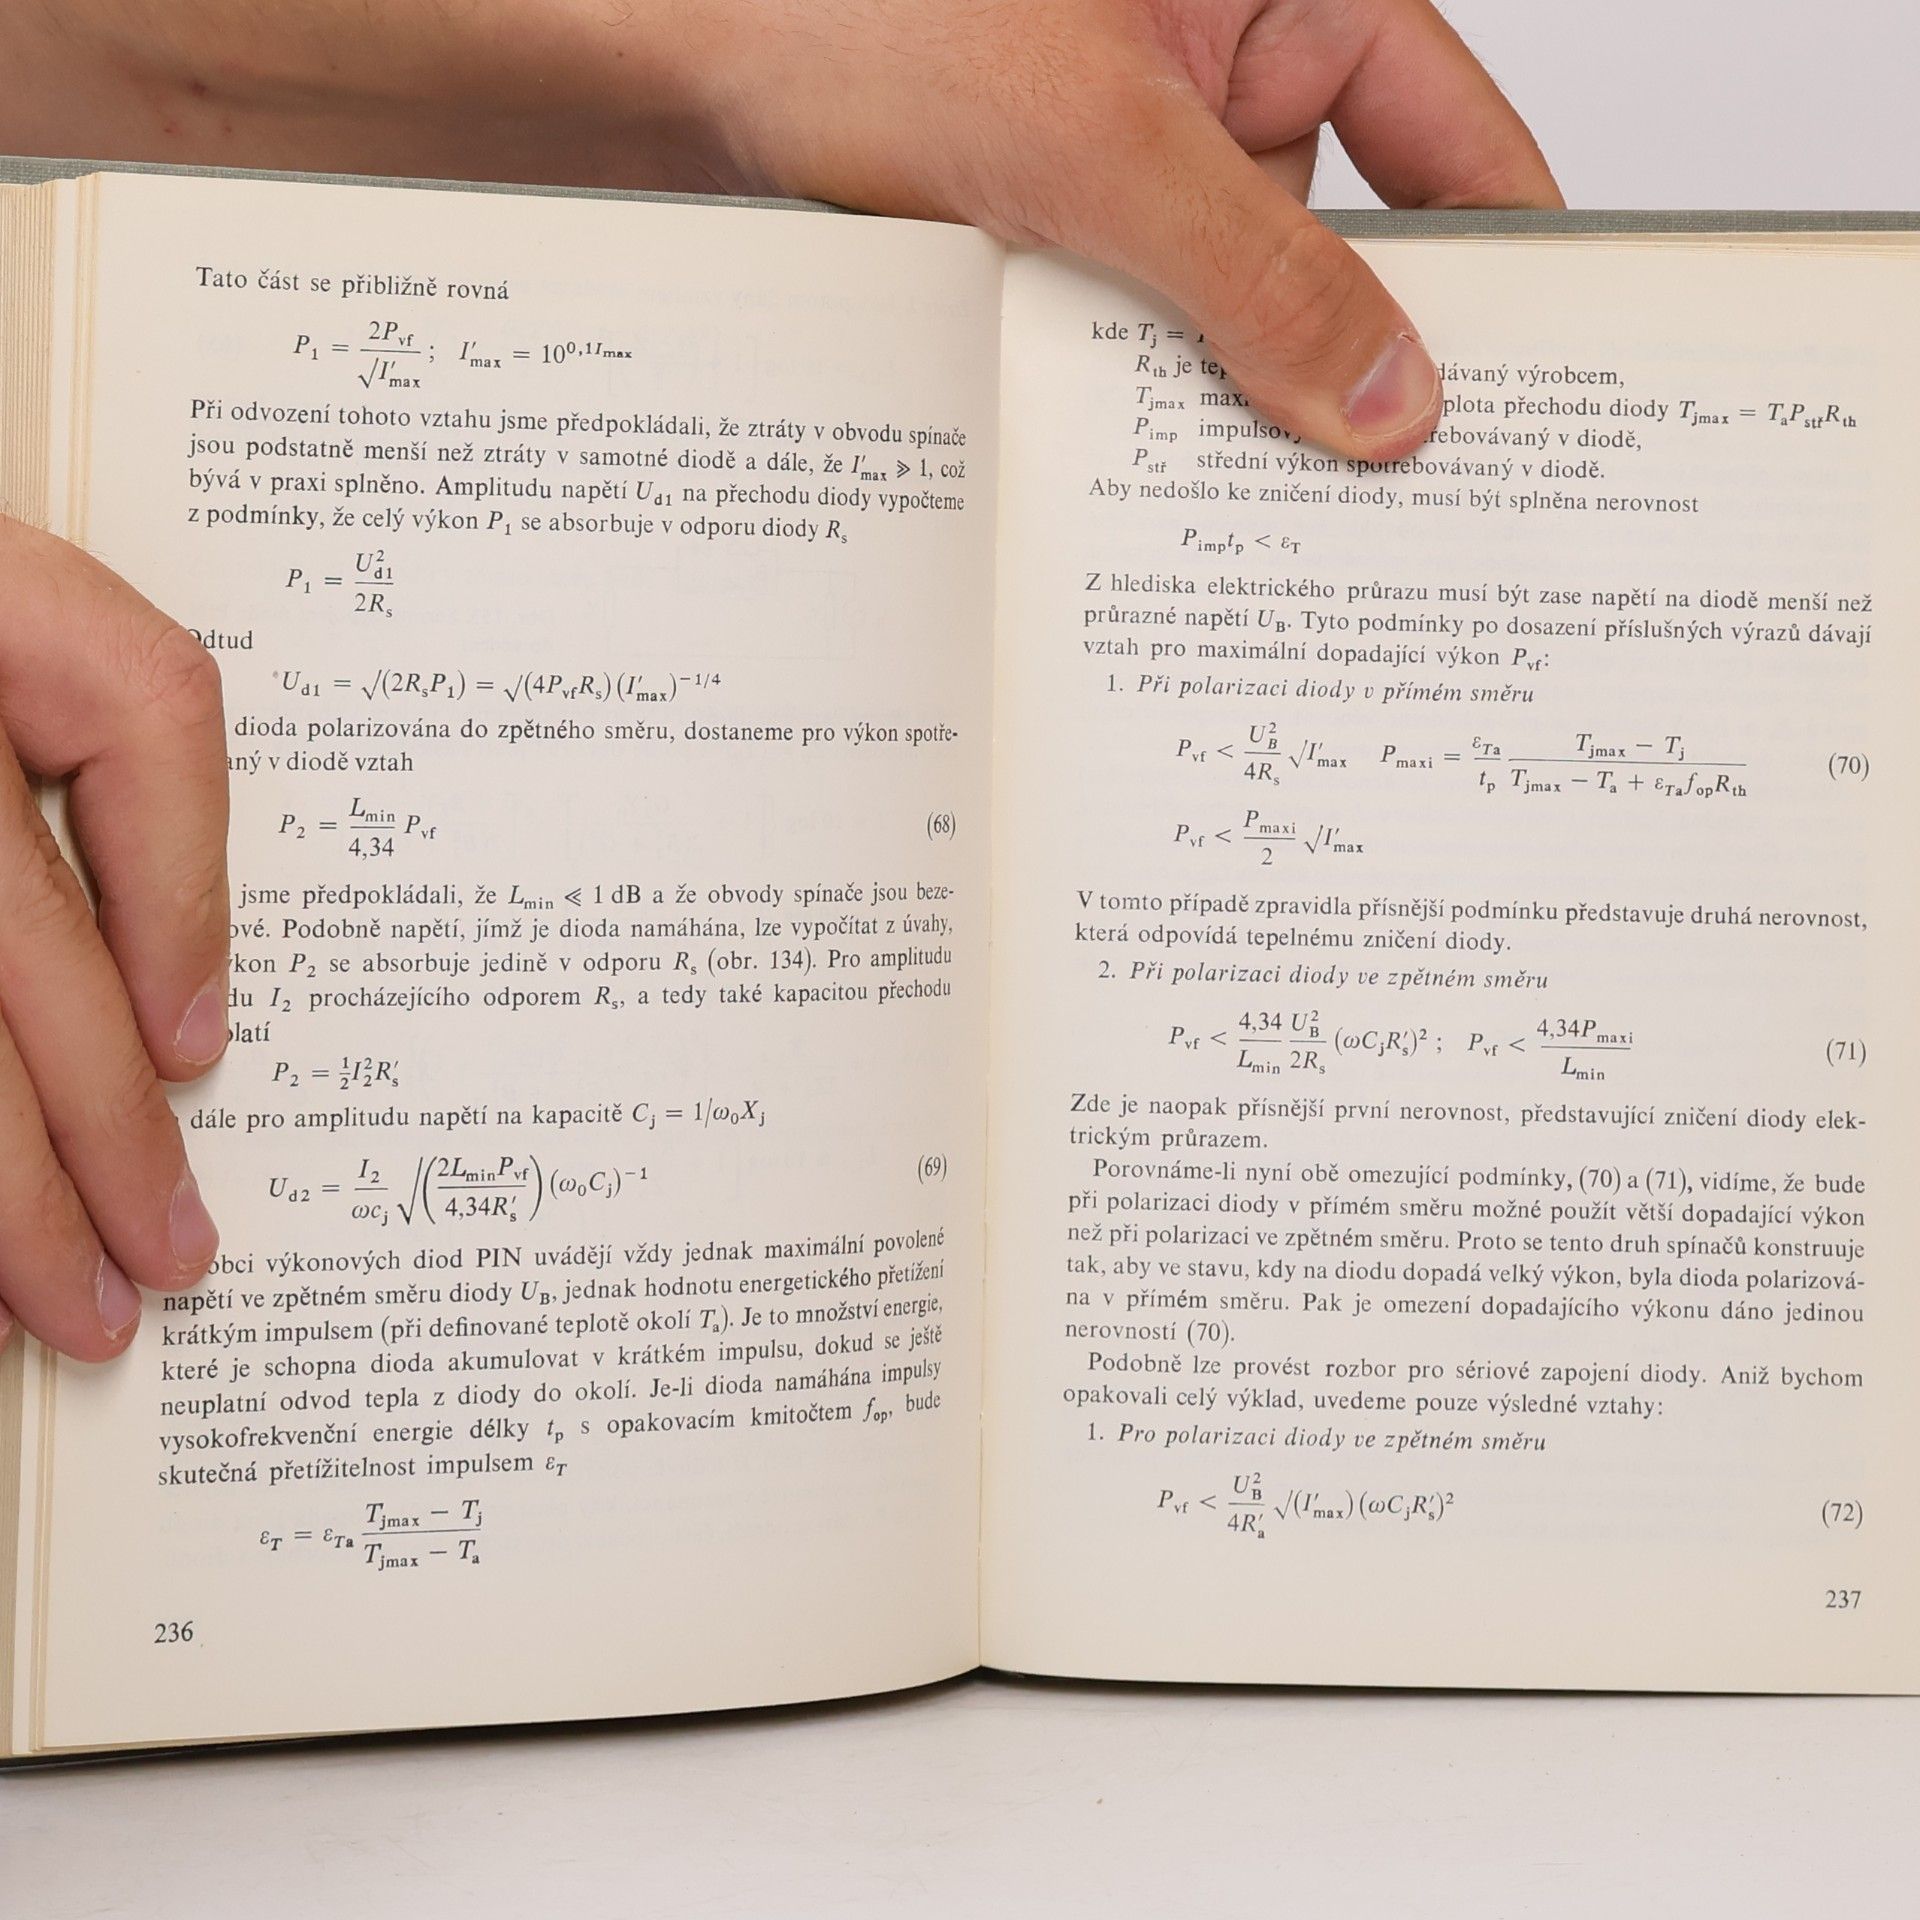 Tato část se přibližně rovná
P₁ = 2P_vf / √I′_max ; I′_max = 10^0,1I_max
Při odvození tohoto vztahu jsme předpokládali, že ztráty v obvodu spínače
jsou podstatně menší než ztráty v samotné diodě a dále, že I′_max ≫ 1, což
bývá v praxi splněno. Amplitudu napětí U_d1 na přechodu diody vypočteme
z podmínky, že celý výkon P₁ se absorbuje v odporu diody R_s
P₁ = U²_d1 / 2R_s
U_d1 = √(2R_sP₁) = √(4P_vfR_s) (I′_max)^−1/4
dioda polarizována do zpětného směru, dostaneme pro výkon spotře-
v diodě vztah
P₂ = L_min / 4,34 P_vf (68)
jsme předpokládali, že L_min ≪ 1 dB a že obvody spínače jsou beze-
Podobně napětí, jímž je dioda namáhána, lze vypočítat z úvahy,
P₂ se absorbuje jedině v odporu R_s (obr. 134). Pro amplitudu
I₂ procházejícího odporem R_s, a tedy také kapacitou přechodu
P₂ = ½I₂²R′_s
dále pro amplitudu napětí na kapacitě C_j = 1/ω₀X_j
U_d2 = I₂ / ωc_j √(2L_minP_vf / 4,34R′_s) (ω₀C_j)^−1 (69)
výkonových diod PIN uvádějí vždy jednak maximální povolené
napětí ve zpětném směru diody U_B, jednak hodnotu energetického přetížení
krátkým impulsem (při definované teplotě okolí T_a). Je to množství energie,
které je schopna dioda akumulovat v krátkém impulsu, dokud se ještě
neuplatní odvod tepla z diody do okolí. Je-li dioda namáhána impulsy
vysokofrekvenční energie délky t_p s opakovacím kmitočtem f_op, bude
skutečná přetížitelnost impulsem ε_T
ε_T = ε_Ta (T_jmax − T_j) / (T_jmax − T_a)
236
kde T_j =
R_th je dávaný výrobcem,
T_jmax plota přechodu diody T_jmax = T_aP_stř R_th
P_imp v diodě,
P_stř střední výkon spotřebovávaný v diodě.
Aby nedošlo ke zničení diody, musí být splněna nerovnost
P_imp t_p < ε_T
Z hlediska elektrického průrazu musí být zase napětí na diodě menší než
průrazné napětí U_B. Tyto podmínky po dosazení příslušných výrazů dávají
vztah pro maximální dopadající výkon P_vf:
1. Při polarizaci diody v přímém směru
P_vf < U²_B / 4R_s √I′_max P_maxi = ε_Ta / t_p (T_jmax − T_j) / (T_jmax − T_a + ε_Ta f_op R_th) (70)
P_vf < P_maxi / 2 √I′_max
V tomto případě zpravidla přísnější podmínku představuje druhá nerovnost,
která odpovídá tepelnému zničení diody.
2. Při polarizaci diody ve zpětném směru
P_vf < 4,34 / L_min U²_B / 2R_s (ωC_jR′_s)² ; P_vf < 4,34P_maxi / L_min (71)
Zde je naopak přísnější první nerovnost, představující zničení diody elek-
trickým průrazem.
Porovnáme-li nyní obě omezující podmínky, (70) a (71), vidíme, že bude
při polarizaci diody v přímém směru možné použít větší dopadající výkon
než při polarizaci ve zpětném směru. Proto se tento druh spínačů konstruuje
tak, aby ve stavu, kdy na diodu dopadá velký výkon, byla dioda polarizová-
na v přímém směru. Pak je omezení dopadajícího výkonu dáno jedinou
nerovností (70).
Podobně lze provést rozbor pro sériové zapojení diody. Aniž bychom
opakovali celý výklad, uvedeme pouze výsledné vztahy:
1. Pro polarizaci diody ve zpětném směru
P_vf < U²_B / 4R′_a √(I′_max) (ωC_jR′_s)² (72)
237